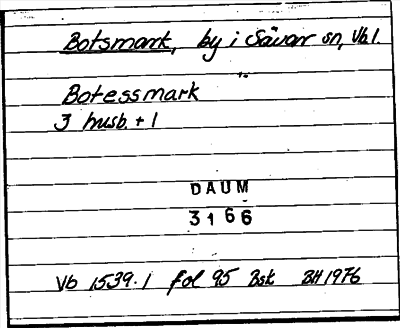 Botsmark, by i Sävar sn, Vb l.
Botessmark
3 husb. + 1
DAUM
3166
Vb 1539.1 fol 95 Bsk BH 1976